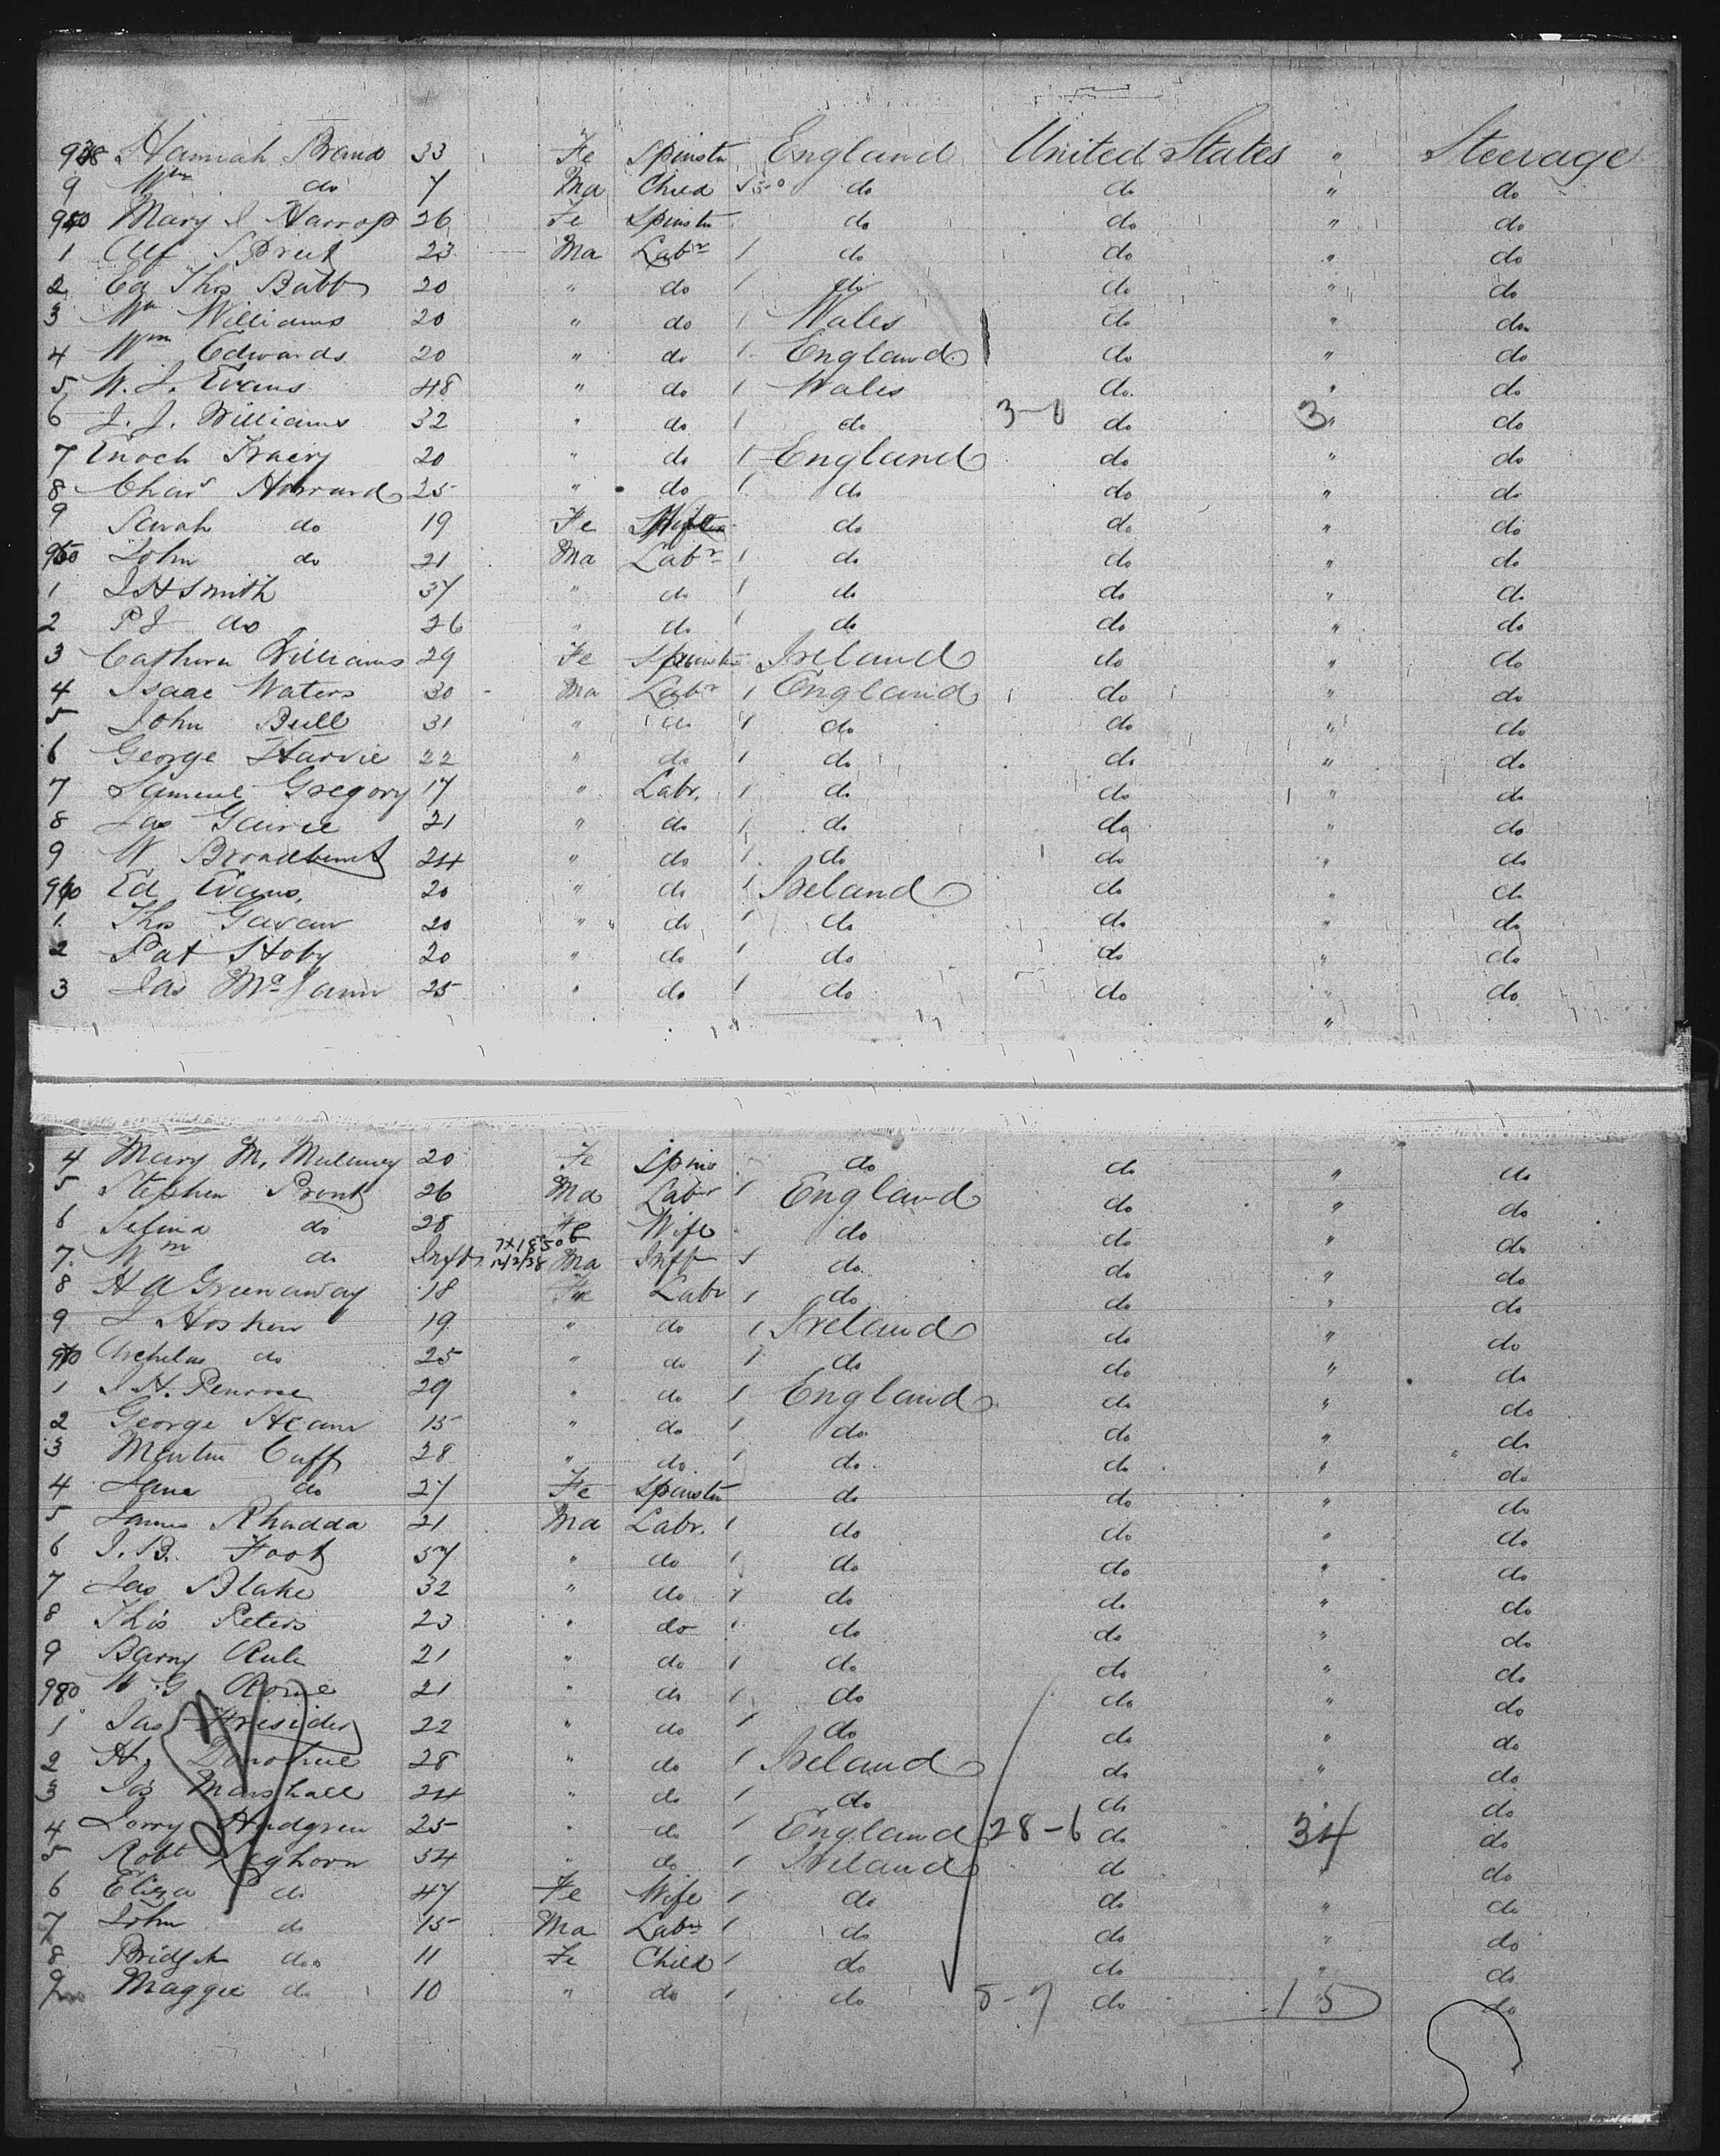 938 Hannah Brand 33 Fe Spinstr England United States " Steerage
9 Wm do 7 Ma Child do do " do
940 Mary J Harrop 26 Fe Spinstr do do " do
1 Alf 23 Ma Labr / do do " do
2 Ed Thos Babb 20 " do / do do " do
3 Wm Williams 20 " do / Wales do " do
4 Wm Edwards 20 " do / England do " do
5 W. J. Evans 48 " do / Wales do " do
6 J. J. Williams 32 " do / do 3-0 do 3 " do
7 Enoch 20 " do / England do " do
8 Chas Howard 25 " do / do do " do
9 Sarah do 19 Fe do do " do
950 John do 21 Ma Labr / do do " do
1 J H Smith 37 " do / do do " do
2 P J do 26 " do / do do " do
3 Williams 29 Fe Spinstr Ireland do " do
4 Isaac Waters 30 Ma Labr / England do " do
5 John Bull 31 " do / do do " do
6 George Harvie 22 " do / do do " do
7 Samuel Gregory 17 " Labr. / do do " do
8 Jas 21 " do / do do " do
9 W Broadbent 24 " do / do do " do
960 Ed Evans, 20 " do / Ireland do " do
1 Thos Gavan 20 " do / do do " do
2 Pat Hoby 20 " do / do do " do
3 Jas 25 " do / do do " do
"
4 Mary M. 20 Fe Spins do do " do
5 Stephen Pront 26 Ma Labr / England do " do
6 Selina do 28 Fe Wife do do " do
7. Wm do Inft Ma Inft / do do " do
8 H A Greenaway 18 Labr / do do " do
9 J Hosken 19 " do / Ireland do " do
970 do 25 " do / do do " do
1 J H. Penrose 29 " do / England do " do
2 George 15 " do / do do " do
3 Martin Cuff 28 " do / do do " do
4 Jane do 27 Fe Spinstr do do " do
5 James Rhadda 21 Ma Labr. / do do " do
6 J. B. Foot 57 " do / do do " do
7 Jas Blake 32 " do / do do " do
8 Thos Peters 23 " do / do do " do
9 Barny Rule 21 " do / do do " do
980 W. G Rowe 21 " do / do do " do
1 Jas 22 " do / do do " do
2 H. Donohue 28 " do / Ireland do " do
3 Jas Marshall 24 " do / do do " do
4 25 " do / England 28-6 do 34 do
5 Robt 54 " do / Ireland do " do
6 Eliza do 47 Fe Wife / do do " do
7 John do 15 Ma Labr / do do " do
8 Bridget do 11 Fe Child / do do " do
9 Maggie do 10 " do / do 8-7 do 15 " do